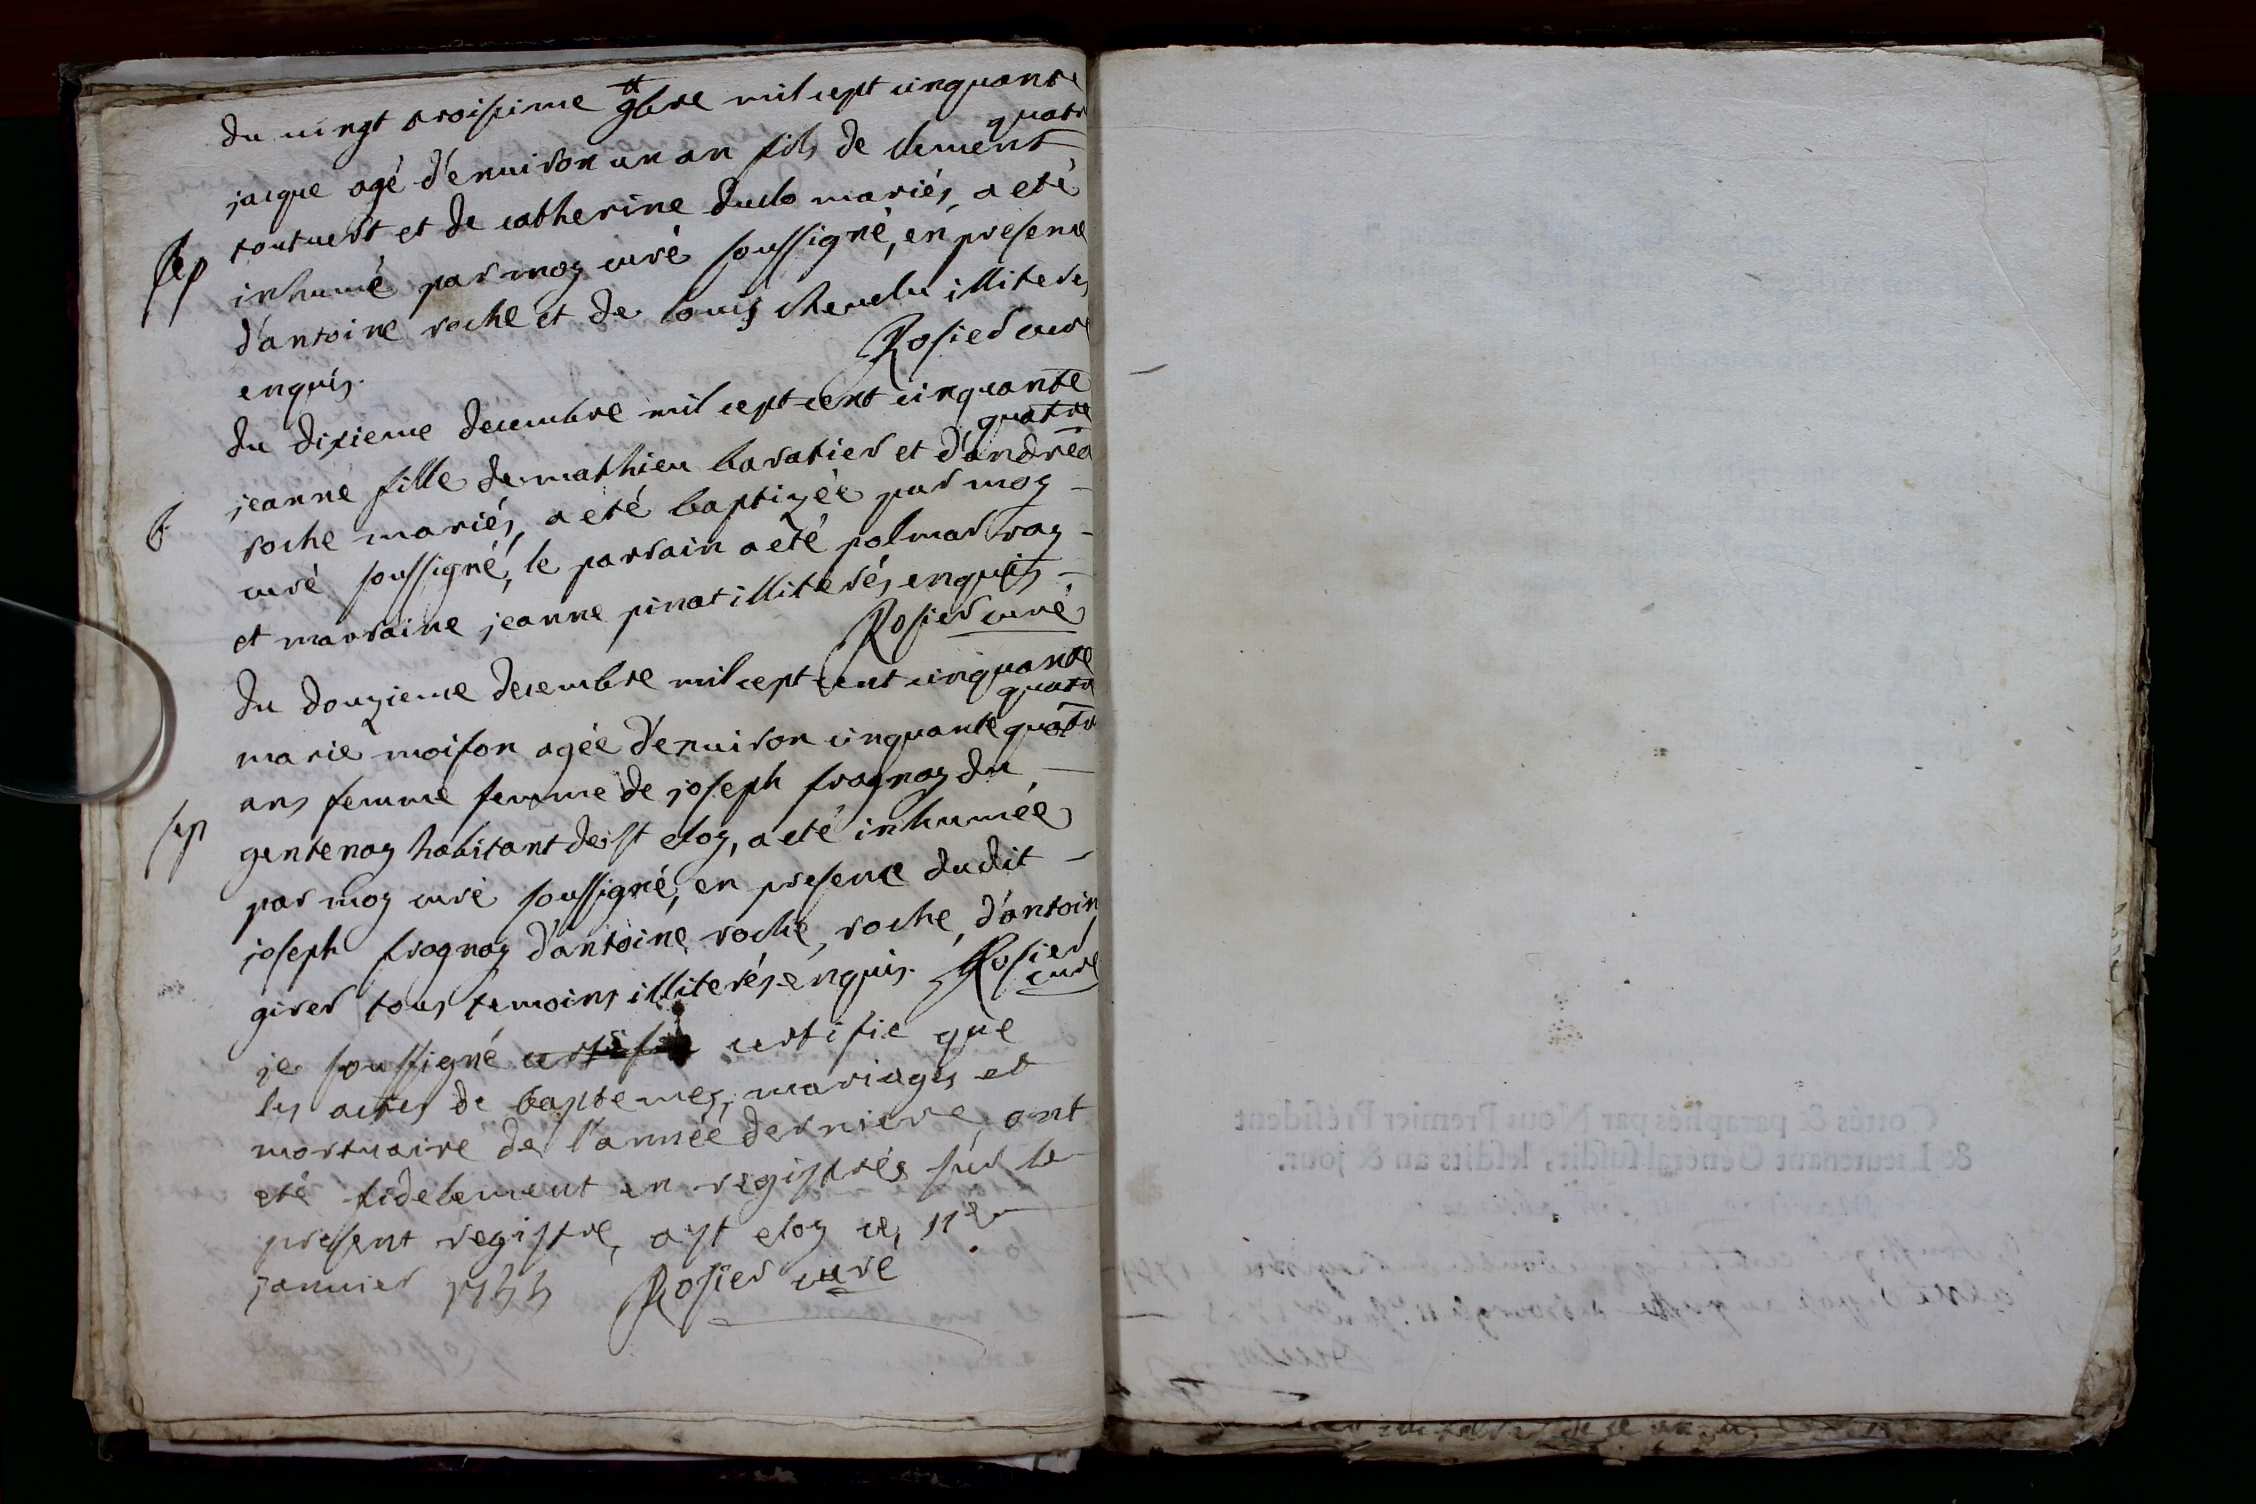 du vingt troisieme 9bre mil cept cinquante
quatre
jacque agé d'environ un an fils de clement
toutuert et de catherine duclo mariés, a eté
sep
inhumé par moy curé soussigné, en presence
d'antoine roche et de louis cheuelu illiterés
enquis.
Rosier curé
du dixieme decembre mil cept cent cinquante
quatre
jeanne fille de mathieu baratier et d'andréa
b
roche mariés, a eté baptizée par moy
curé soussigné, le parrain a eté polmar ray
et marraine jeanne pinat illiterés enquis
Rosier curé
du douzieme decembre mil cept cent cinquante
quatre
marie moison agée d'environ cinquante quatre
ans femme femme de joseph fragnay du
sep
gentenay habitant de st eloy, a eté inhumée
par moy curé soussigné, en presence dudit
joseph fragnay d'antoine roche, roche, d'antoin
girer tous temoins illiterés enquis. Rosier
curé
je soussigné certifie que
les actes de baptemes, mariages et
mortuaire de l'année derniere, ont
eté fidelement en registrés sur le
present registre, a st eloy ce, 11e
janvier 1755 Rosier curé
Cottés & paraphés par Nous Premier Président
& Lieutenant Général susdit, lesdits an & jour.